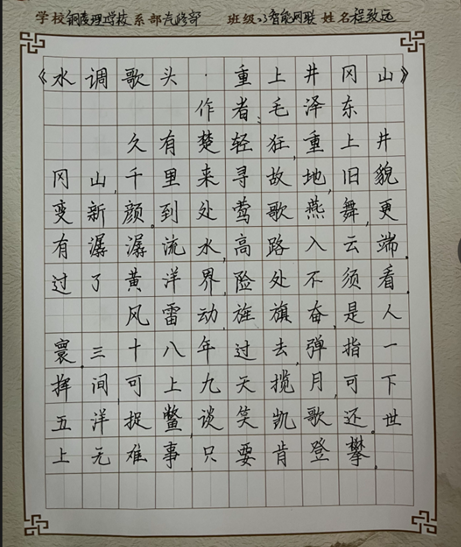 学校铜陵理工学校系部汽修部 班级23智能网联姓名程致远
《水调歌头·重上井冈山》
作者：毛泽东
久有楚轻狂,重上井
冈山,千里来寻故地,旧貌
变新颜。到处莺歌燕舞,更
有潺潺流水,高路入云端。
过了黄洋界,险处不须看。
风雷动,旌旗奋,是人
寰。三十八年过去,弹指一
挥间,可上九天揽月,可下
五洋捉鳖,谈笑凯歌还。世
上无难事,只要肯登攀。